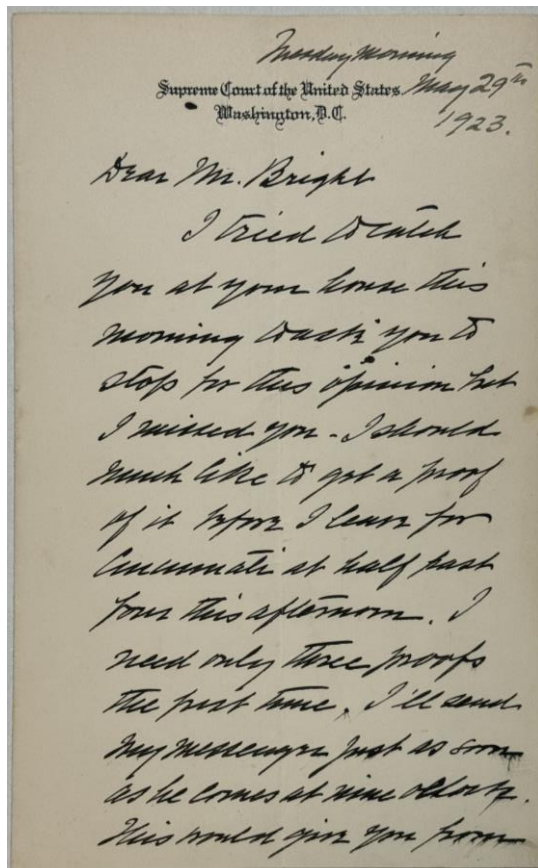 Tuesday Morning
Supreme Court of the United States May 29th
Washington, D.C.
1923.
Dear Mr. Bright
I tried to catch
you at your house this
morning to ask you to
stop for this opinion but
I missed you - I should
much like to get a proof
of it before I leave for
Cincinnati at half past
four this afternoon. I
need only three proofs
the first time. I'll send
my messenger just as soon
as he comes at nine o'clock.
This would give you from